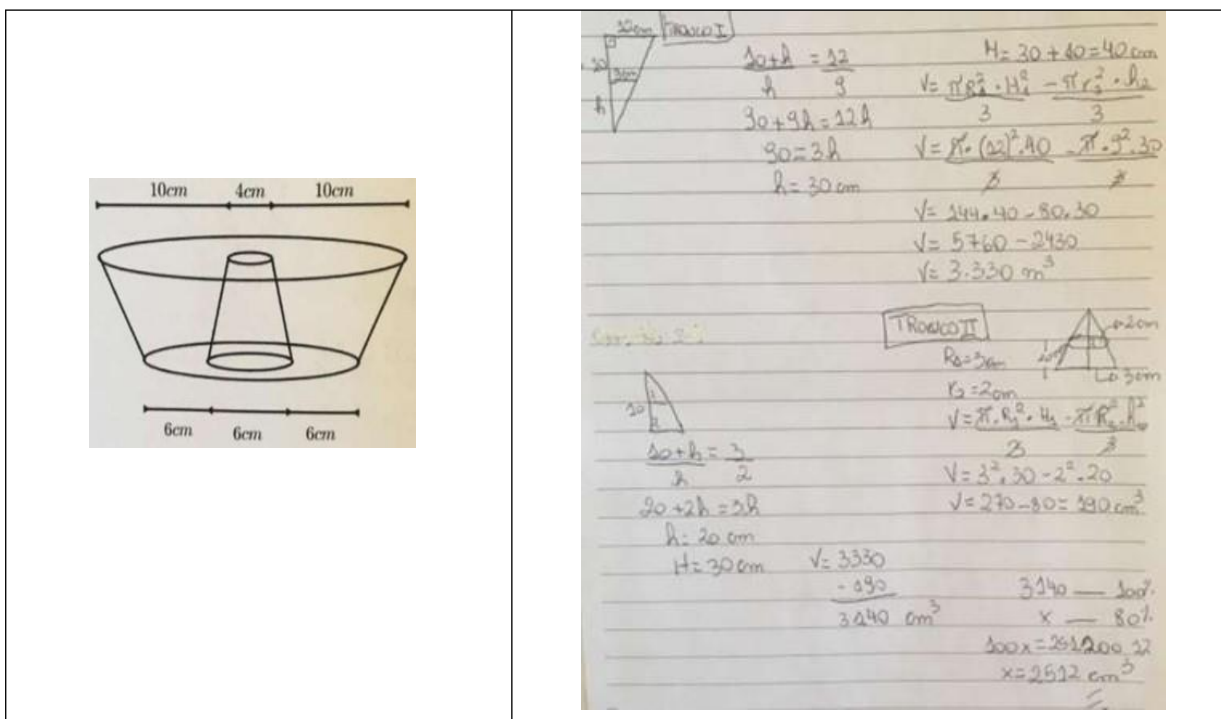 10cm 4cm 10cm
6cm 6cm 6cm
12cm TRONCO I
10
9cm
h
10+h = 12
h 9
90+9h=12h
90=3h
h=30 cm
H=30+10=40cm
V= πR₁²·H₁² - πr₂²·h₂
3 3
V= π·(12)²·40 - π·9²·30
3 3
V= 144.40-80.30
V= 5760-2430
V= 3.330 m³
TRONCO II
2cm
3cm
R₁=3cm
r₂=2cm
V= π.R₁².H₁ - πR₂².h₂²
3 3
V=3².30-2².20
V=270-80=190cm³
10
10+h = 3
h 2
20+2h=3h
h=20 cm
H=30cm
V= 3330
-190
3140 cm³
3140 — 100%
x — 80%
100x=251200
x=2512 cm³